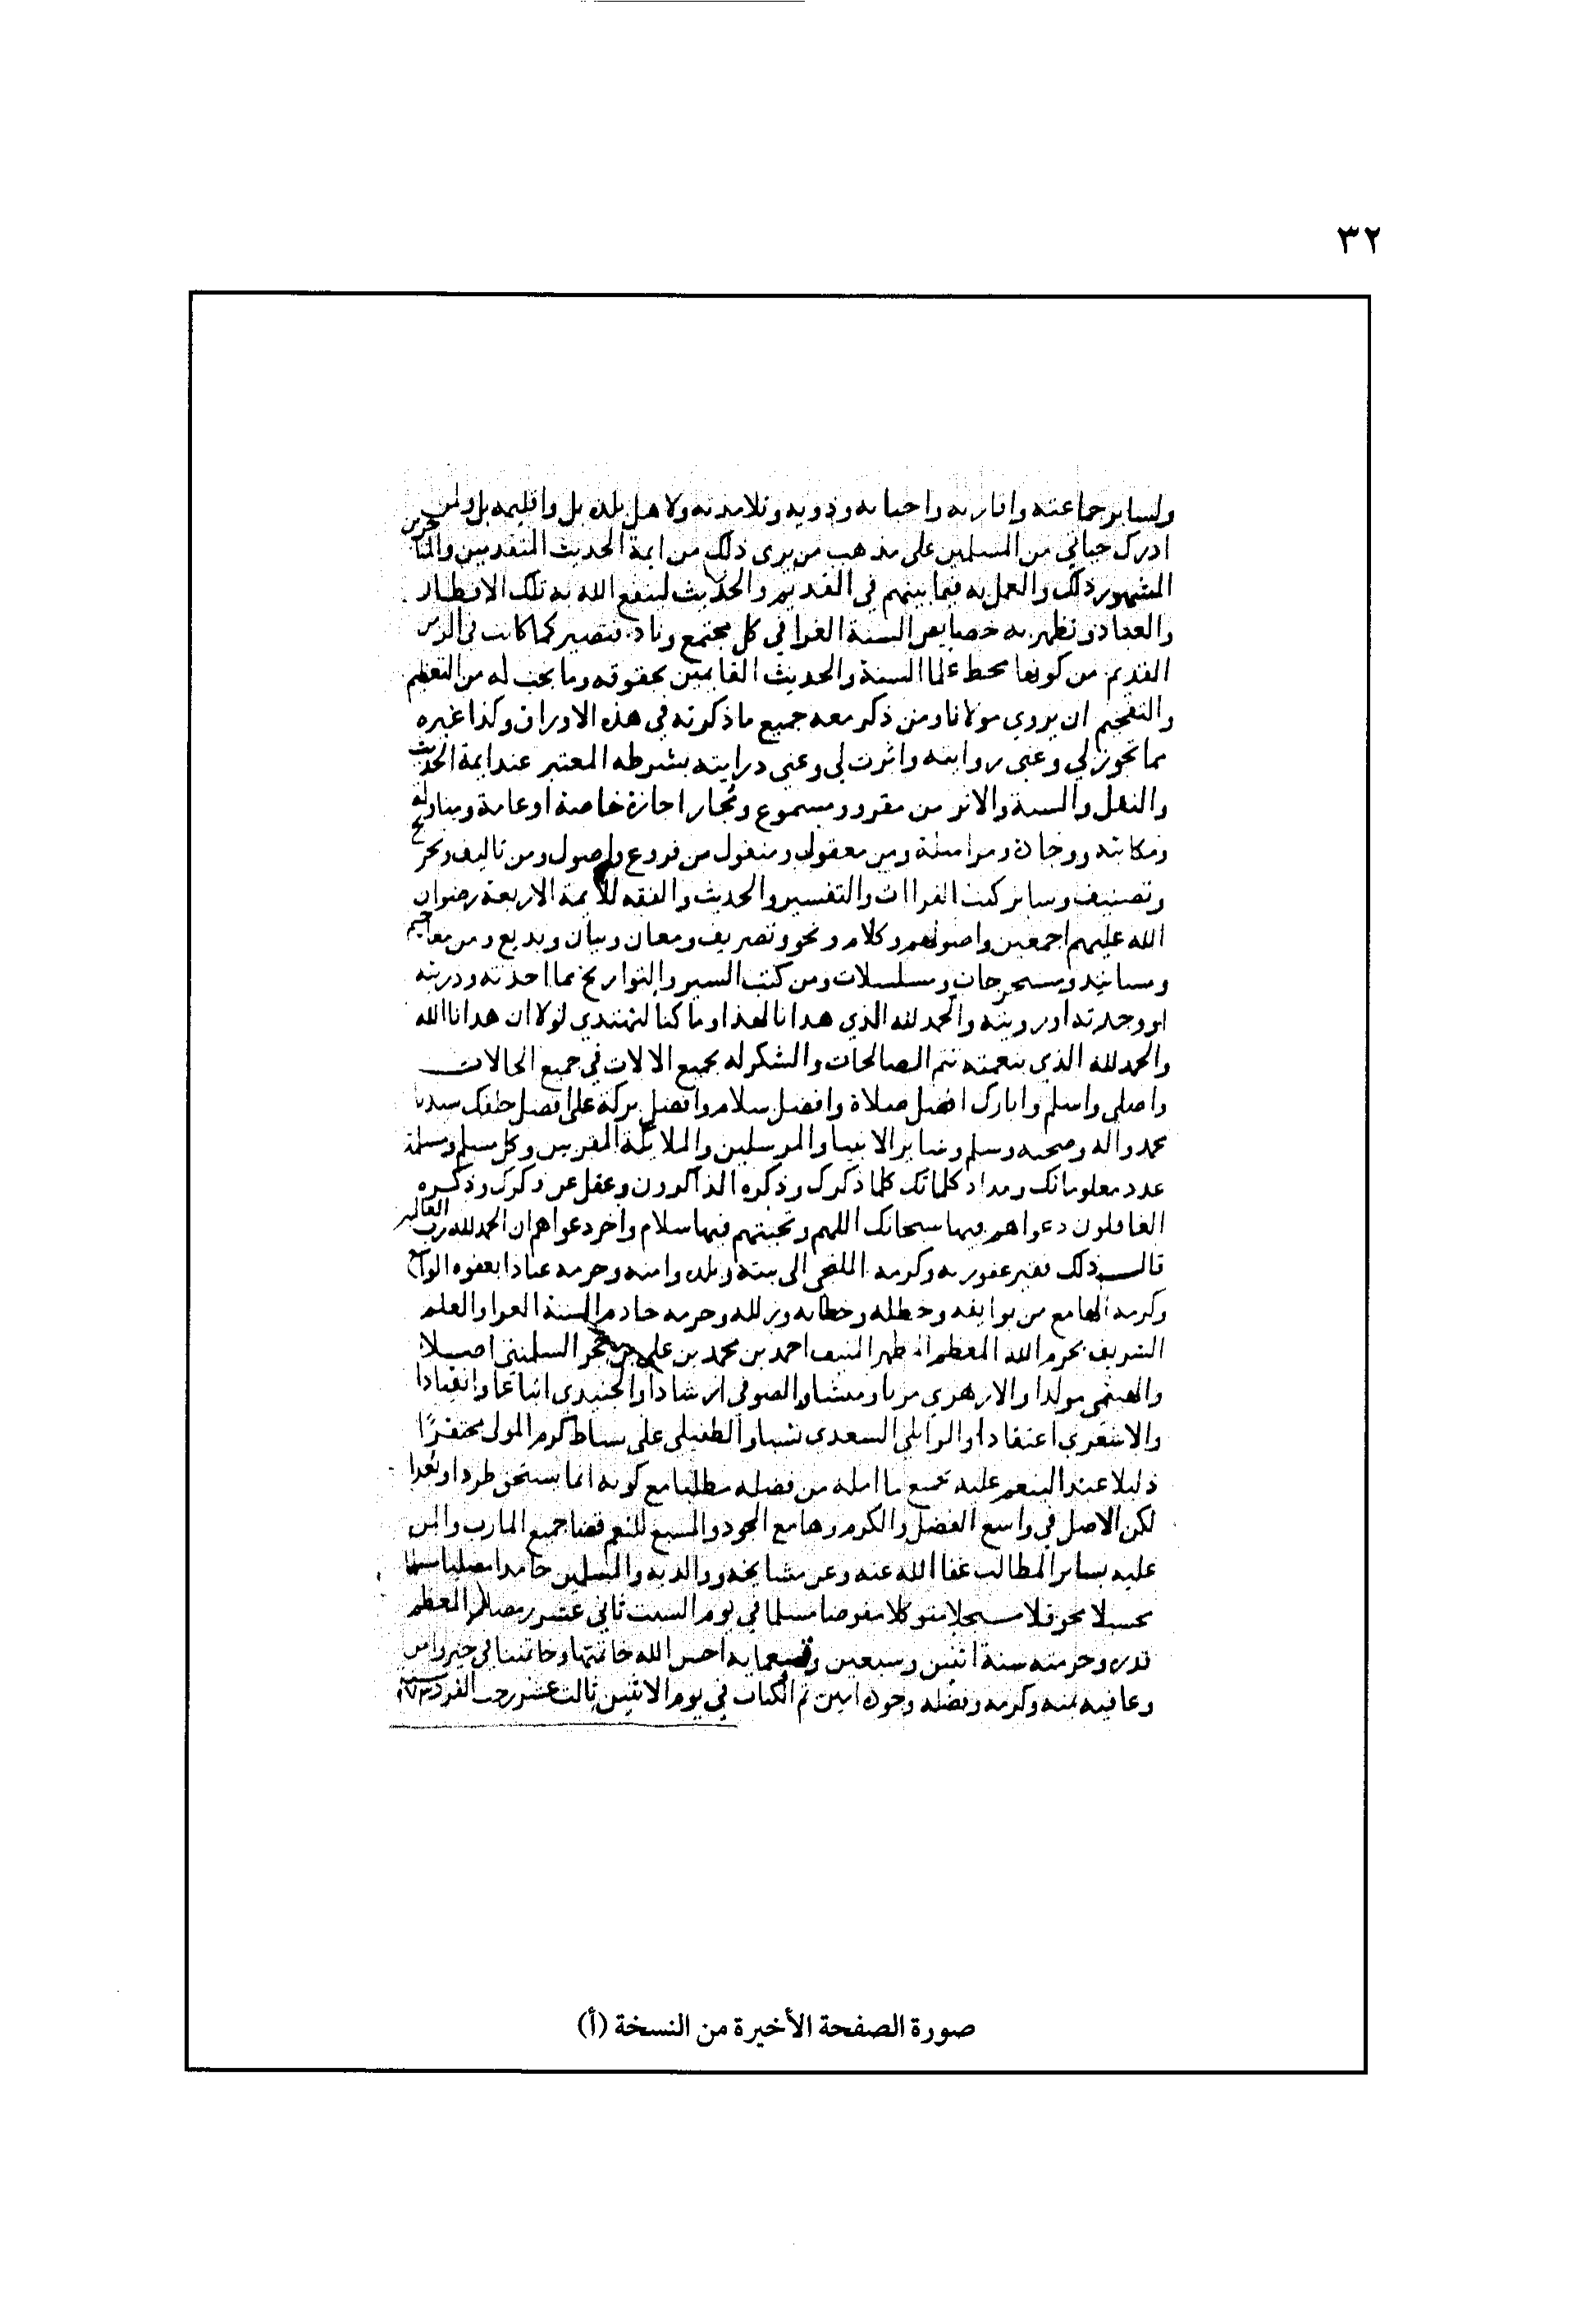 ٣٢
ولساير جماعته واقاربه واحبابه وذويه وتلامذته ولاهل بلده بل واقليمه بل ولمن
ادرك حياتي من المسلمين على مذهب من يرى ذلك من ايمة الحديث المتقدمين والمتاخرين
المشهور ذلك والعمل به فيما بينهم في القديم والحديث لينفع الله به تلك الاقطار
والعباد وتظهر به خصايص السنة الغرا في كل مجتمع وناد فتصير كما كانت في الزمن
القديم من كونها محط علما السنة والحديث القايمين بحقوقه وما يجب له من التعظيم
والتفخيم ان يروي مولانا ومن ذكر معه جميع ما ذكرته في هذه الاوراق وكذا غيره
مما تجوز لي وعني روايته واثرت لي وعني درايته بشرطه المعتبر عند ايمة الحديث
والنقل والسنة والاثر من مقرو ومسموع ومجاز اجازة خاصة او عامة ومناولة
ومكاتبة ووجادة ومراسلة ومن معقول ومنقول من فروع واصول ومن تاليف وتخريج
وتصنيف وساير كتب القراات والتفسير والحديث والفقه للايمة الاربعة رضوان
الله عليهم اجمعين واصولهم وكلام ونحو وتصريف ومعان وبيان وبديع ومن معاجيم
ومسانيد ومستخرجات ومسلسلات ومن كتب السير والتواريخ مما اخذته ودريته
او وجدته او رويته والحمد لله الذي هدانا لهذا وما كنا لنهتدي لولا ان هدانا الله
والحمد لله الذي بنعمته تتم الصالحات والشكر له بجميع الالات في جميع الحالات
واصلي واسلم وابارك افضل صلاة وافضل سلام وافضل بركة على افضل خلقك سيدنا
محمد واله وصحبه وسلم وساير الانبيا والمرسلين والملايكة المقربين وكل مسلم ومسلمة
عدد معلوماتك ومداد كلماتك كلما ذكرك وذكره الذاكرون وغفل عن ذكرك وذكره
الغافلون دعواهم فيها سبحانك اللهم وتحيتهم فيها سلام واخر دعواهم ان الحمد لله رب العالمين
قال ذلك فقير عفو ربه وكرمه الملتجي الى بيته وبلده وامنه وحرمه عياذا بعفوه الواسع
وكرمه الهامع من بوايقه وخطله وخطايه وزلله وجرمه خادم السنة الغرا والعلم
الشريف بحرم الله المعظم المطهر المنيف احمد بن محمد بن علي بن حجر السلمنتي اصلا
والهيتمي مولدا والازهري مربا ومنشا والصوفي ارشادا والجنيدي اتباعا وانقيادا
والاشعري اعتقادا والوايلي السعدي نسبا والطفيلي على بساط كرم المولى محتقرا
ذليلا عند المنعم عليه بجميع ما امله من فضله متطلبا مع كونه انما يستحق طردا وبعدا
لكن الاصل في واسع الفضل والكرم وهامع الجود والمسبغ للنعم قضا جميع المارب والمن
عليه بساير المطالب عفا الله عنه وعن مشايخه ووالديه والمسلمين حامدا مصليا مسلما
محسبلا محوقلا مسبحلا متوكلا مفوضا مسلما في يوم السبت ثاني عشر رمضان المعظم
قدره وحرمته سنة اثنين وسبعين وتسعماية احسن الله خاتمتها وخاتمتنا في خير وامن
وعافية بمنه وكرمه وفضله وجوده امين تم الكتاب في يوم الاثنين ثالث عشر رجب الفرد سنة
صورة الصفحة الأخيرة من النسخة (أ)